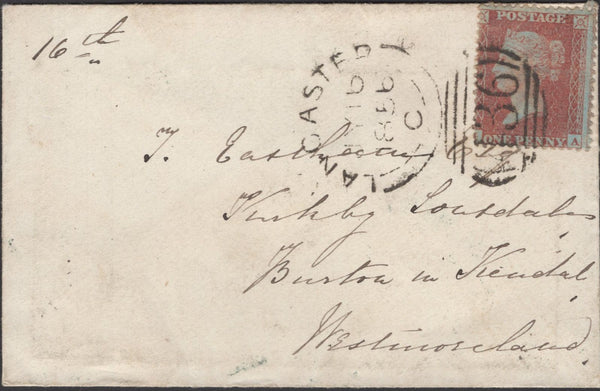 16th
POSTAGE
LANCASTER
1856
C
ONE PENNY
A
T. Eastham Esq
Kirkby Lonsdale
Burton in Kendal
Westmoreland